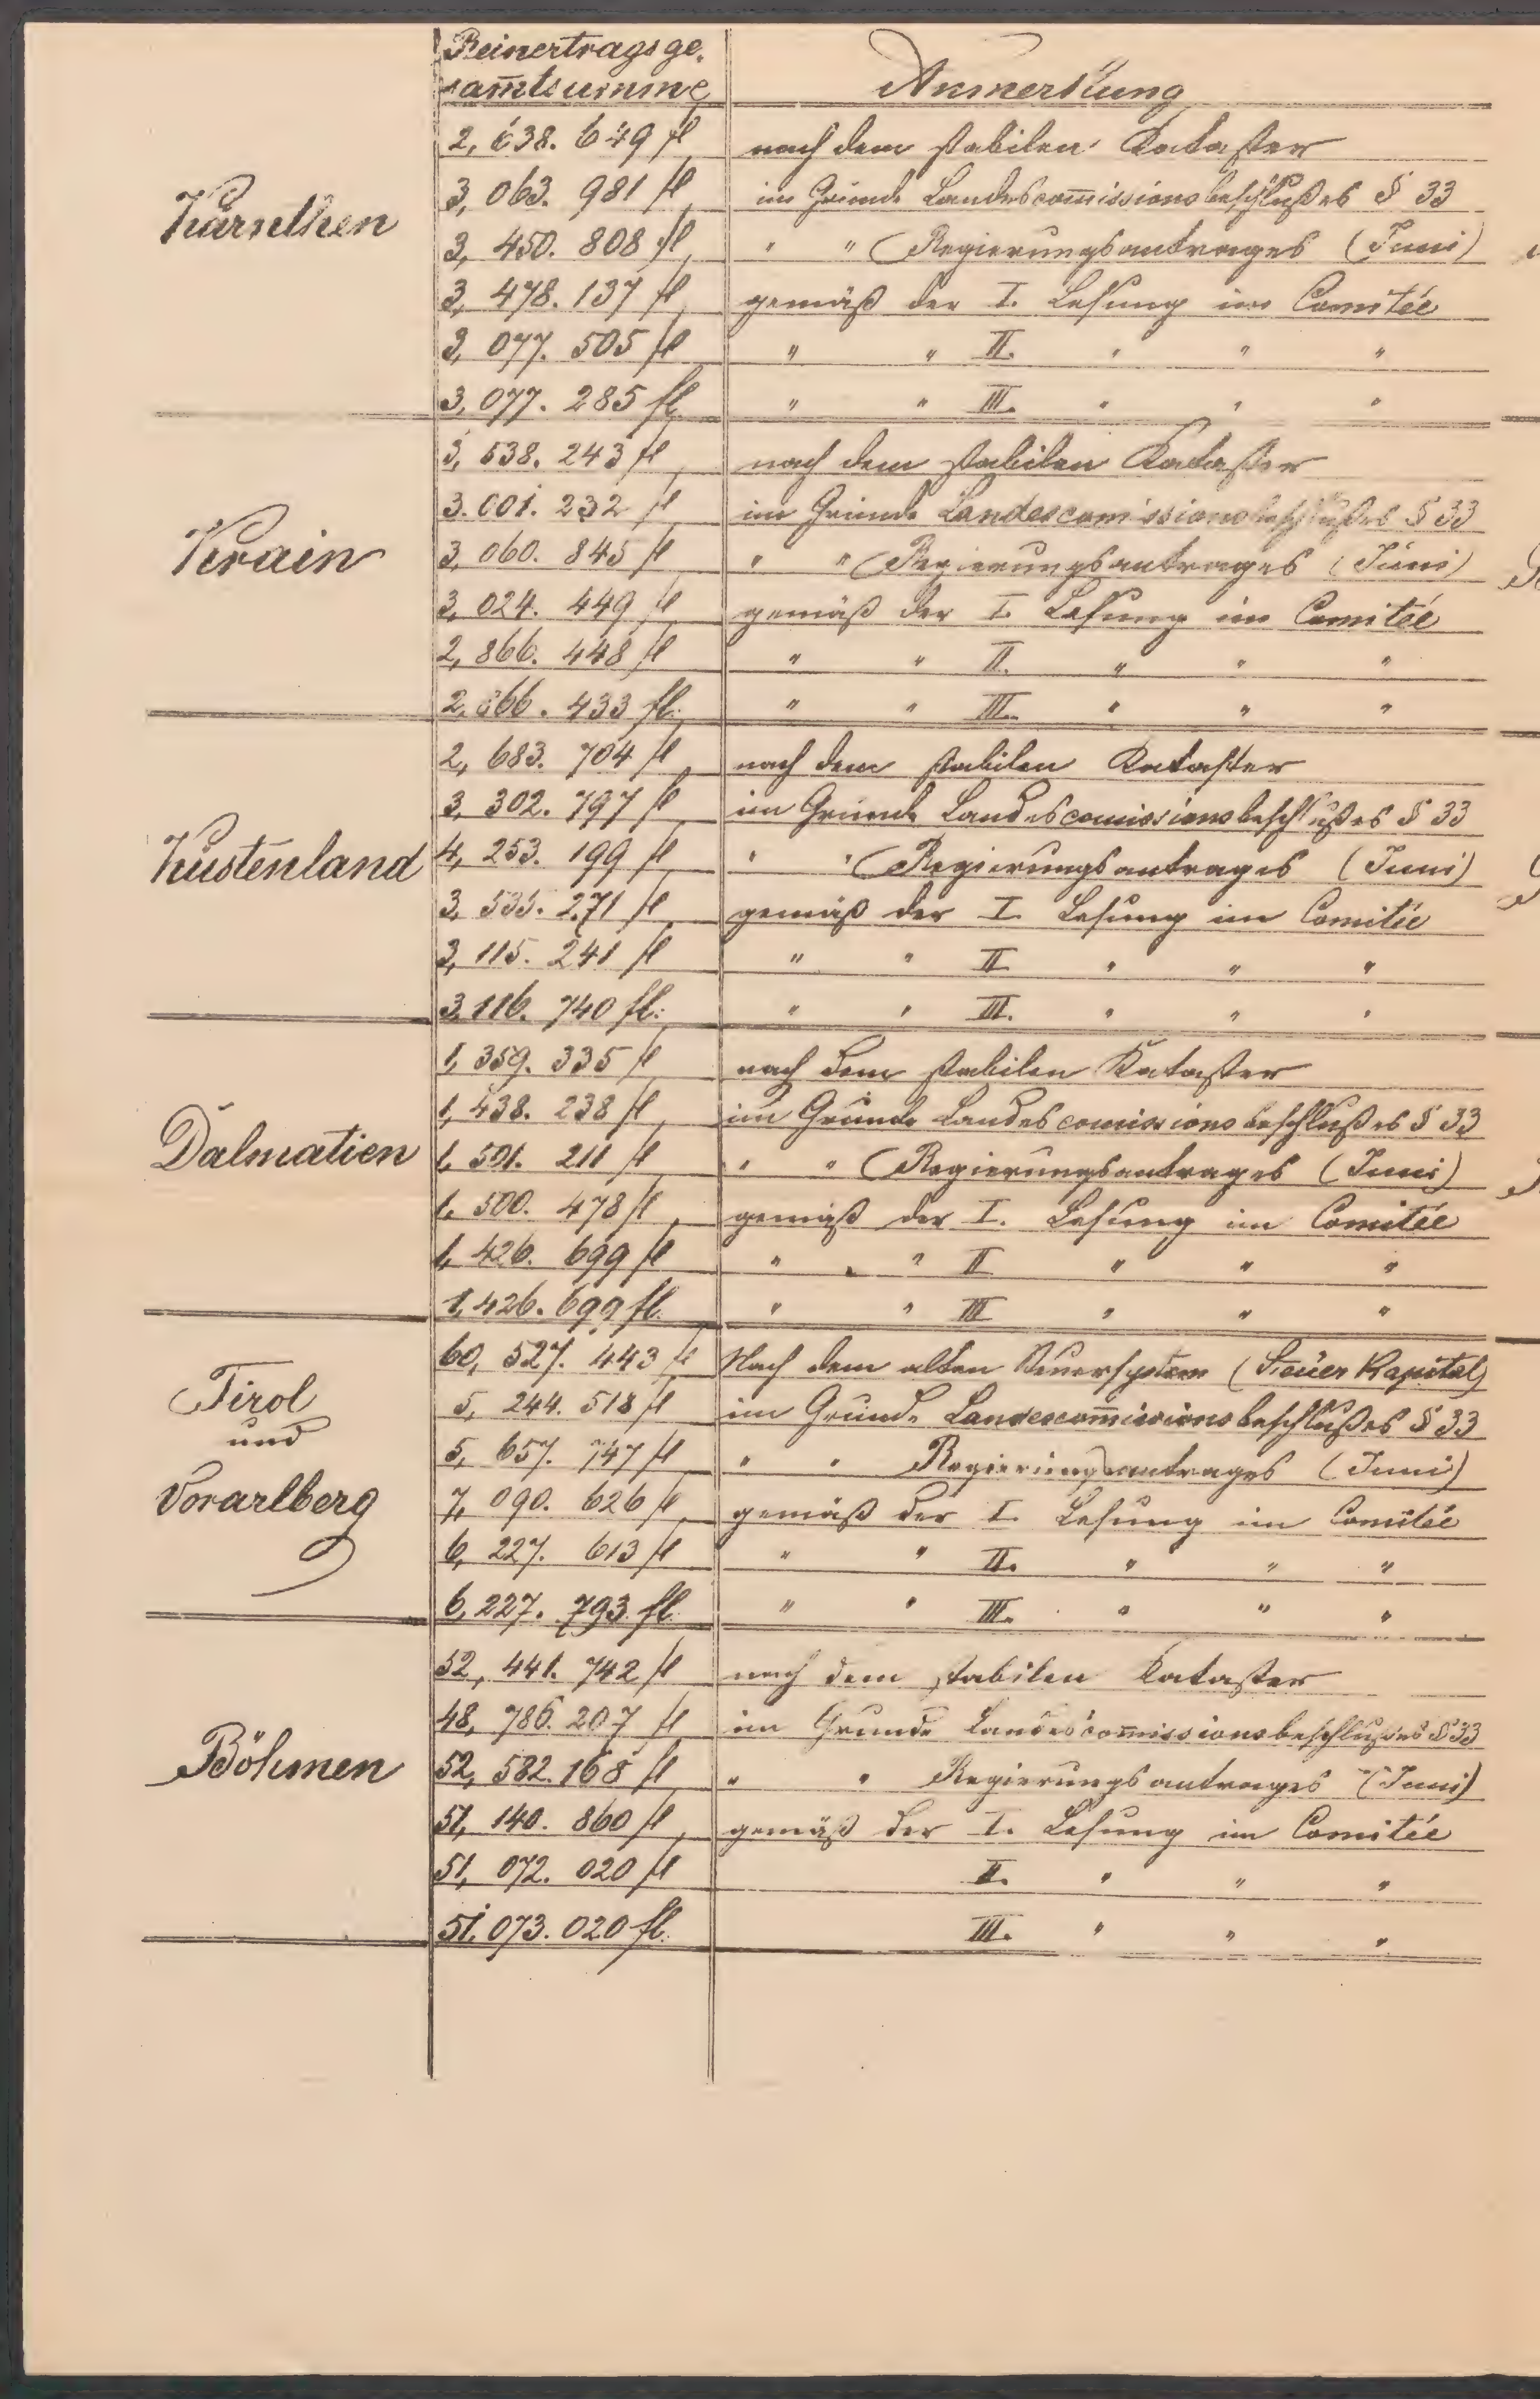 Reinertragsge-
sam̄tsumme Anmerkung
Kärnthen
2, 638. 649 fl nach dem stabilen Kataster
3, 063. 981 fl im Grunde Landescom̄issionsbeschlußes § 33
3, 450. 808 fl " " Regierungsantrages (Juni)
3, 478. 137 fl gemäß der I. Lesung im Comitée
3, 077. 505 fl " " II. " " "
3, 077. 285 fl " " III. " " "
Krain
3, 538. 243 fl nach dem stabilen Kataster
3. 001. 232 fl im Grunde Landescomissionsbeschlußes § 33
3, 060. 845 fl " " Regierungsantrages (Juni)
3, 024. 449 fl gemäß der I. Lesung im Comitée
2, 866. 448 fl " " II. " " "
2, 866. 433 fl. " " III. " " "
Küstenland
2, 683. 704 fl nach dem stabilen Kataster
3, 302. 797 fl im Grunde Landescomissionsbeschlußes § 33
4, 253. 199 fl " " Regierungsantrages (Juni)
3, 535. 271 fl gemäß der I. Lesung im Comitée
3, 115. 241 fl " " II " " "
3, 116. 740 fl. " " III. " " "
Dalmatien
1, 359. 335 fl nach dem stabilen Kataster
1, 438. 238 fl im Grunde Landescomissionsbeschlußes § 33
1, 501. 211 fl " " Regierungsantrages (Juni)
1, 500. 478 fl gemäß der I. Lesung im Comitée
1, 426. 699 fl " " II " " "
1, 426. 699 fl. " " III " " "
Tirol
und
Vorarlberg
60, 527. 443 fl Nach dem alten Steuersystem (Steuer Kapital)
5, 244. 518 fl im Grunde Landescom̄issionsbeschlußes § 33
5, 657. 747 fl " " Regierungsantrages (Juni)
7, 090. 626 fl gemäß der I. Lesung im Comitée
6, 227. 613 fl " " II. " " "
6, 227. 793 fl. " " III. " " "
Böhmen
52, 441. 742 fl nach dem stabilen Kataster
48, 786. 207 fl im Grunde Landescom̄issionsbeschlußes § 33
52, 582. 168 fl " " Regierungsantrages (Juni)
51, 140. 860 fl gemäß der I. Lesung im Comitée
51, 072. 020 fl II. " " "
51, 073. 020 fl. III. " " "